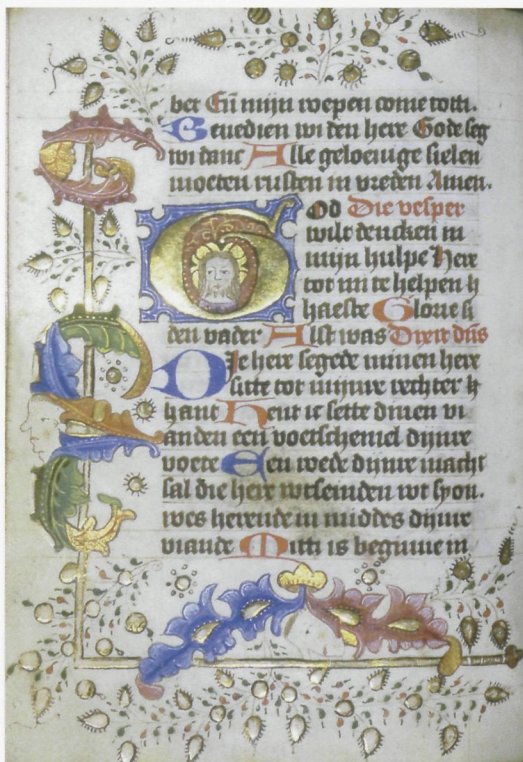 bet En mijn roepen come toti.
Gevedien wi den here Gode seg
wi danc Alle gelovige sielen
moeten rusten in vreden Amen.
God Die vesper
wilt dencken in
mijn hulpe Here
tot mi te helpen h
haeste Glorie si
den vader Alst was Dixit dns
Die here segede minen here
sitte tot mijnre rechter h
hant Hent ic sette dinen vi
anden een voetschemel dijnre
voete Een roede dijnre macht
sal die here wtseinden wt syon.
wes herende in middes dijnre
viande Mitti is beginne in